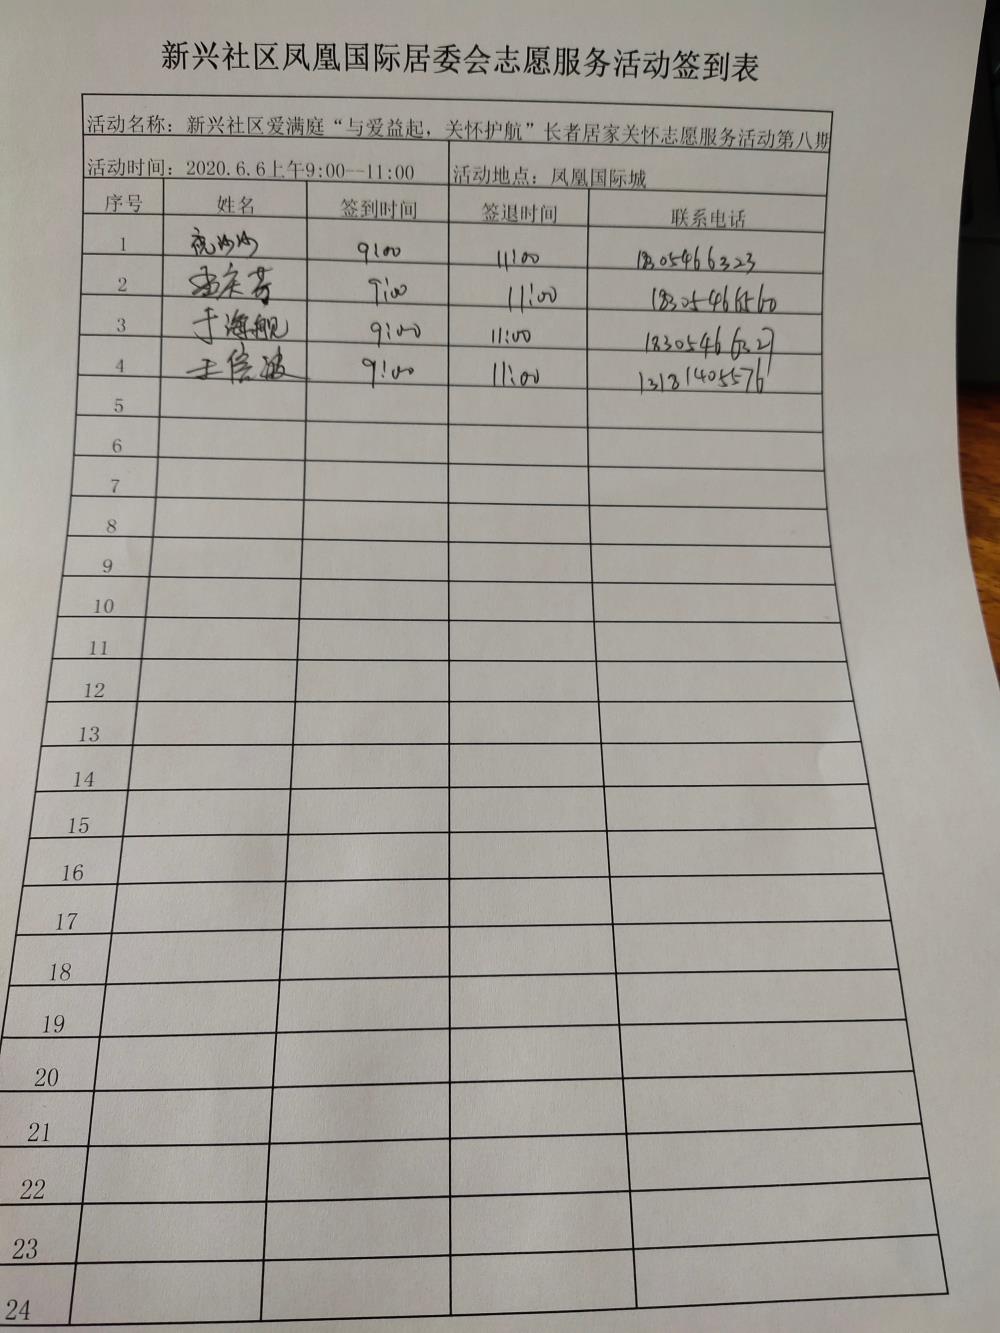 新兴社区凤凰国际居委会志愿服务活动签到表
活动名称：新兴社区爱满庭“与爱益起，关怀护航”长者居家关怀志愿服务活动第八期
活动时间：2020.6.6上午9:00--11:00 活动地点：凤凰国际城
序号 姓名 签到时间 签退时间 联系电话
1 祝沙沙 9:00 11:00 18305466323
2 孟庆芳 9:00 11:00 18305466560
3 于海舰 9:00 11:00 18305466327
4 王信波 9:00 11:00 13181405576
5
6
7
8
9
10
11
12
13
14
15
16
17
18
19
20
21
22
23
24